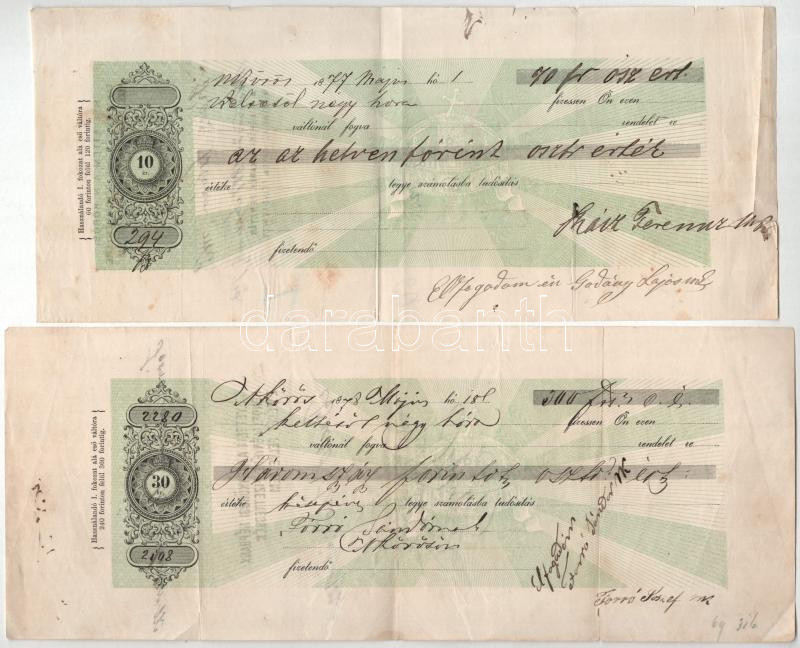 Használandó I. fokozat alá eső váltóra
60 forinton felül 120 forintig.
10
kr.
294
1877 Május hó 1
70 fr osz ért.
Kelzéstől négy hóra
fizessen Ön ezen
váltónál fogva
rendelet re
az az hetven forint osztr érték
értéke
tegye számolásba tudósítás
fizetendő
Ferencz
Elfogadom én Godány Lajos
darabanth
Használandó I. fokozat alá eső váltóra
240 forinton felül 360 forintig.
2280
30
kr.
2008
1878 Május hó 18
300
fizessen Ön ezen
Keltéstől négy hóra
váltónál fogva
rendelet re
Háromszáz forintot osztr. ért.
értéke
készpénz
tegye számolásba tudósítás
Forró Sándornak
fizetendő
Elfogadom
Forró Sándor
Forró József
69 316